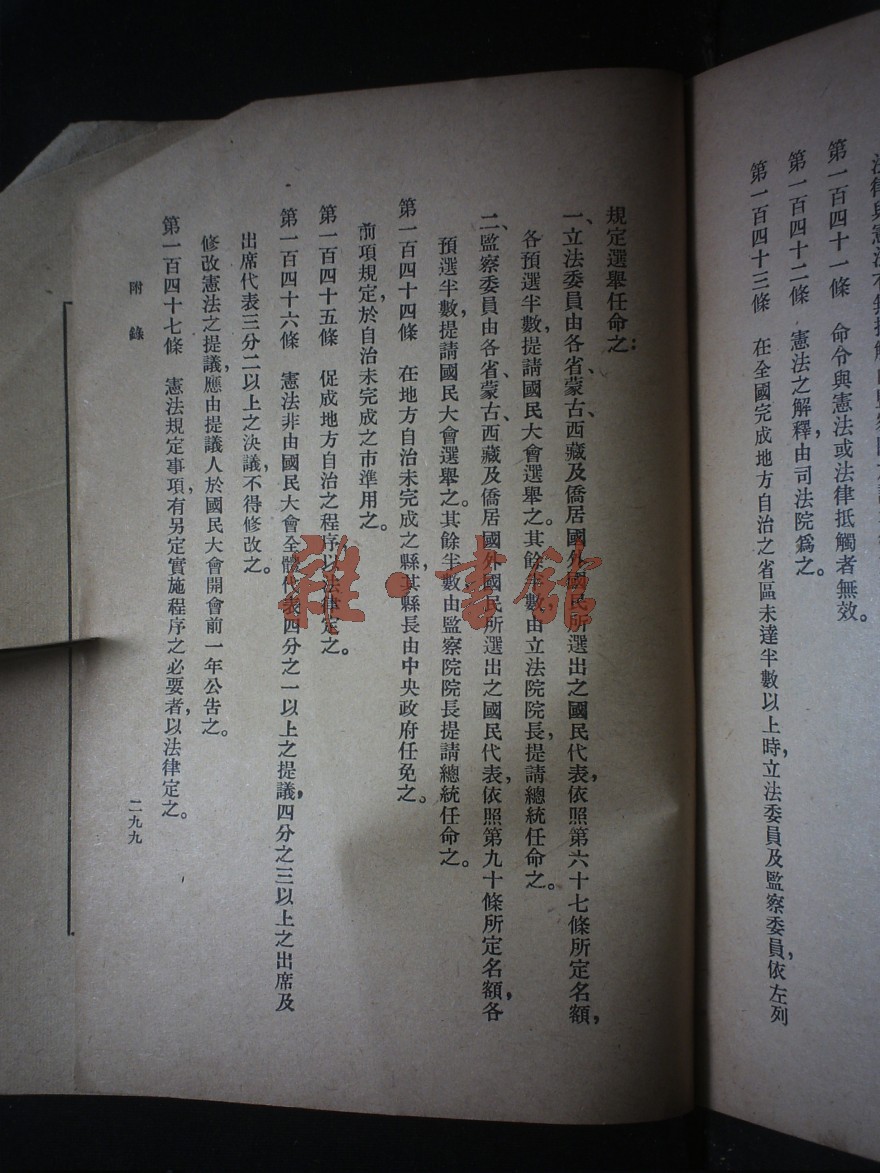 第一百四十一條　命令與憲法或法律抵觸者無效。
第一百四十二條　憲法之解釋，由司法院爲之。
第一百四十三條　在全國完成地方自治之省區未達半數以上時，立法委員及監察委員，依左列
規定選舉任命之：
一、立法委員由各省、蒙古、西藏及僑居國外國民所選出之國民代表，依照第六十七條所定名額，
各預選半數，提請國民大會選舉之。其餘半數，由立法院院長，提請總統任命之。
二、監察委員由各省、蒙古、西藏及僑居國外國民所選出之國民代表，依照第九十條所定名額，各
預選半數，提請國民大會選舉之。其餘半數，由監察院院長提請總統任命之。
第一百四十四條　在地方自治未完成之縣，其縣長由中央政府任免之。
前項規定，於自治未完成之市準用之。
第一百四十五條　促成地方自治之程序，以法律定之。
第一百四十六條　憲法非由國民大會全體代表四分之一以上之提議，四分之三以上之出席，及
出席代表三分二以上之決議，不得修改之。
修改憲法之提議，應由提議人於國民大會開會前一年公告之。
第一百四十七條　憲法規定事項，有另定實施程序之必要者，以法律定之。
附錄
二九九
雜·書館